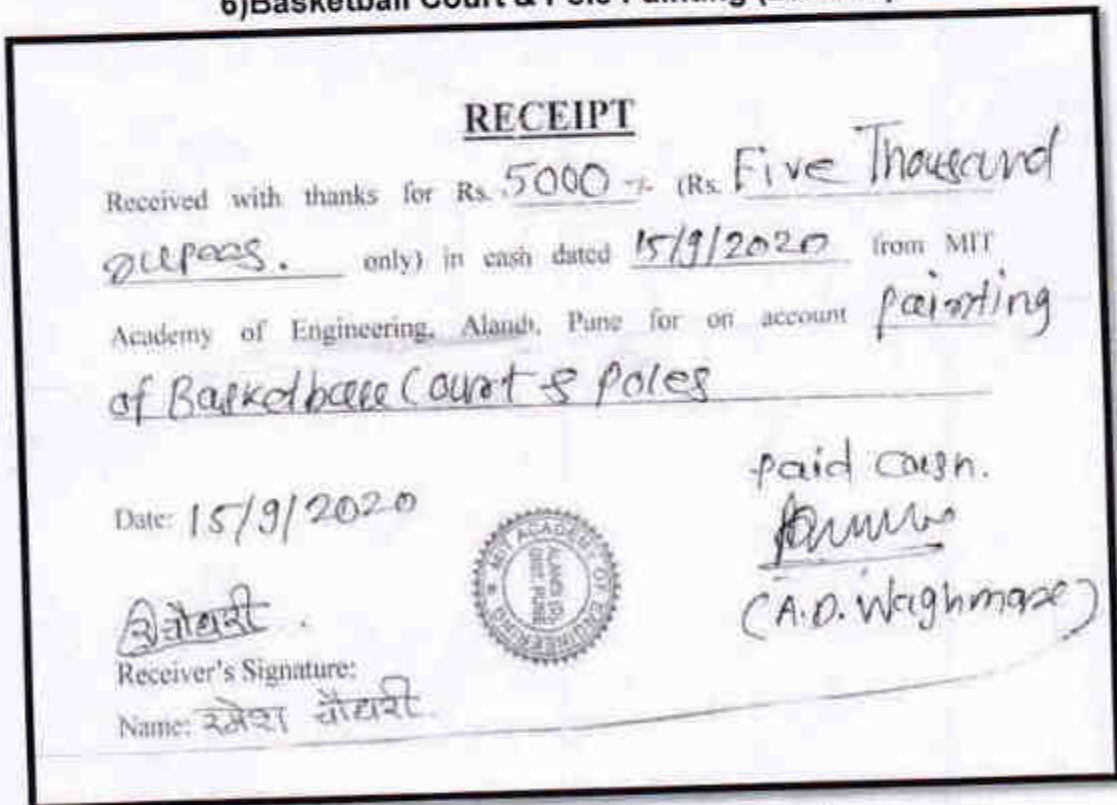 6)Basketball Court & Pole Painting
RECEIPT
Received with thanks for Rs. 5000 -/- (Rs. Five Thousand
rupees. only) in cash dated 15/9/2020 from MIT
Academy of Engineering, Alandi, Pune for on account painting
of Basketball Court & Poles
paid cash.
Date: 15/9/2020
(A.D. Waghmare)
MIT ACADEMY OF ENGINEERING
ALANDI (D)
DIST. PUNE
रचौधरी.
Receiver's Signature:
Name: रमेश चौधरी.